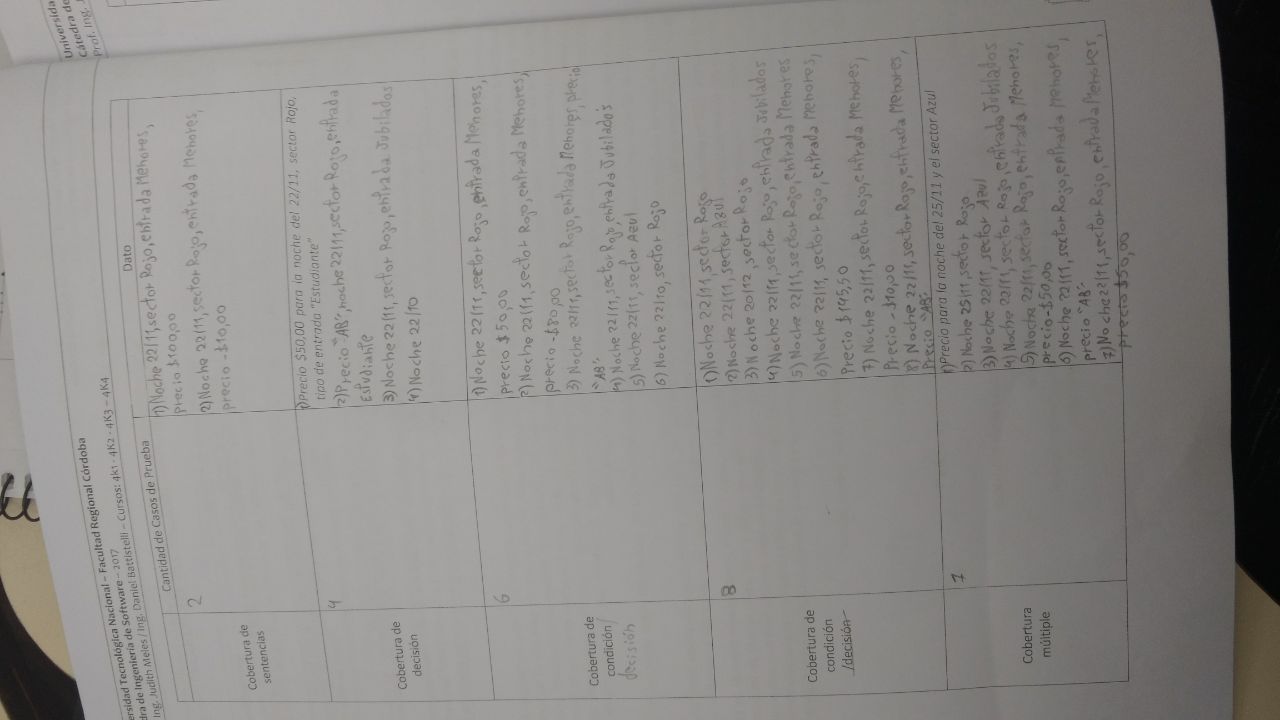 Universida
Cátedra de
Prof. Ing. J
ersidad Tecnológica Nacional – Facultad Regional Córdoba
dra de Ingeniería de Software – 2017
Ing. Judith Meles / Ing. Daniel Battistelli – Cursos: 4k1 - 4K2 - 4K3 – 4K4
Cantidad de Casos de Prueba
Dato
Cobertura de
sentencias
2
1) Noche 22/11, sector Rojo, entrada Menores,
precio $100,00
2) Noche 22/11, sector Rojo, entrada Menores,
precio -$10,00
Cobertura de
decisión
4
1) Precio $50,00 para la noche del 22/11, sector Rojo,
tipo de entrada "Estudiante"
2) Precio "AB", noche 22/11, sector Rojo, entrada
Estudiante
3) Noche 22/11, sector Rojo, entrada Jubilados
4) Noche 22/10
Cobertura de
condición/
decisión
6
1) Noche 22/11, sector Rojo, entrada Menores,
precio $50,00
2) Noche 22/11, sector Rojo, entrada Menores,
precio -$80,00
3) Noche 22/11, sector Rojo, entrada Menores, precio
"AB"
4) Noche 22/11, sector Rojo, entrada Jubilados
5) Noche 22/11, sector Azul
6) Noche 22/10, sector Rojo
Cobertura de
condición
/decisión
8
1) Noche 22/11, sector Rojo
2) Noche 22/11, sector Azul
3) Noche 20/12, sector Rojo
4) Noche 22/11, sector Rojo, entrada Jubilados
5) Noche 22/11, sector Rojo, entrada Menores
6) Noche 22/11, sector Rojo, entrada Menores,
Precio $195,50
7) Noche 22/11, sector Rojo, entrada Menores,
Precio -$10,00
8) Noche 22/11, sector Rojo, entrada Menores,
Precio "AB"
Cobertura
múltiple
7
1) Precio para la noche del 25/11 y el sector Azul
2) Noche 25/11, sector Rojo
3) Noche 22/11, sector Azul
4) Noche 22/11, sector Rojo, entrada Jubilados
5) Noche 22/11, sector Rojo, entrada Menores,
precio -$50,00
6) Noche 22/11, sector Rojo, entrada Menores,
precio "AB"
7) Noche 22/11, sector Rojo, entrada Menores,
precio $50,00